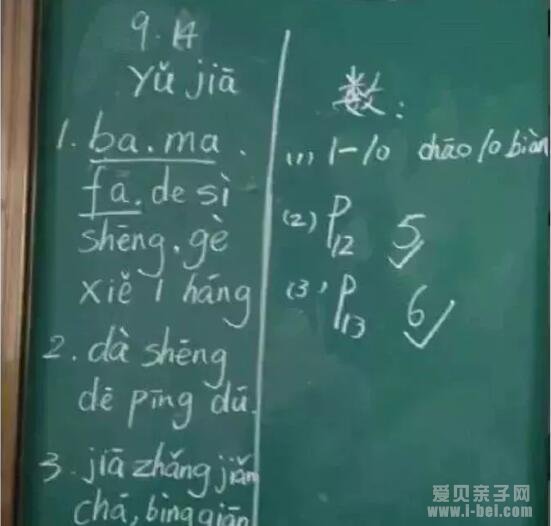 9.14
Yǔ jiā
1. ba. ma.
fa. de sì
shēng. gè
xiě 1 háng
2. dà shēng
dē pīng dū.
3. jiā zhǎng jiǎn
chá, bìng qiān
数:
(1) 1-10 chāo 10 biàn
(2) P12 5
(3) P13 6
爱贝亲子网
www.i-bei.com